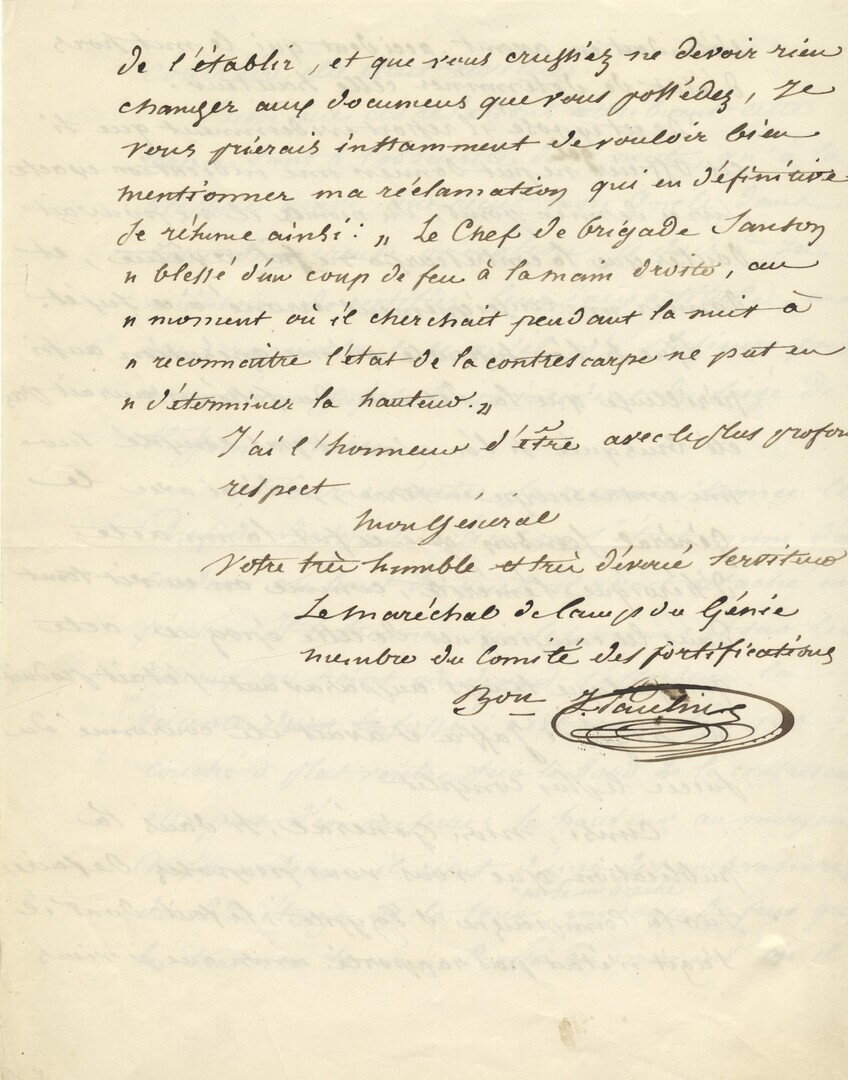 de l'établir, et que vous crussiez ne devoir rien
changer aux documens que vous possédez, Je
vous prierais instamment de vouloir bien
mentionner ma réclamation qui en définitive
se résume ainsi : „ Le Chef de brigade Sanson
„ blessé d'un coup de feu à la main droite, au
„ moment où il cherchait pendant la nuit à
„ reconnaitre l'état de la contrescarpe ne put en
„ déterminer la hauteur. „
J'ai l'honneur d'être avec le plus profon
respect
Mon Général
Votre très humble et très dévoué serviteur
Le Maréchal de Camp du Génie
membre du Comité des fortifications
Bon J. Paulin